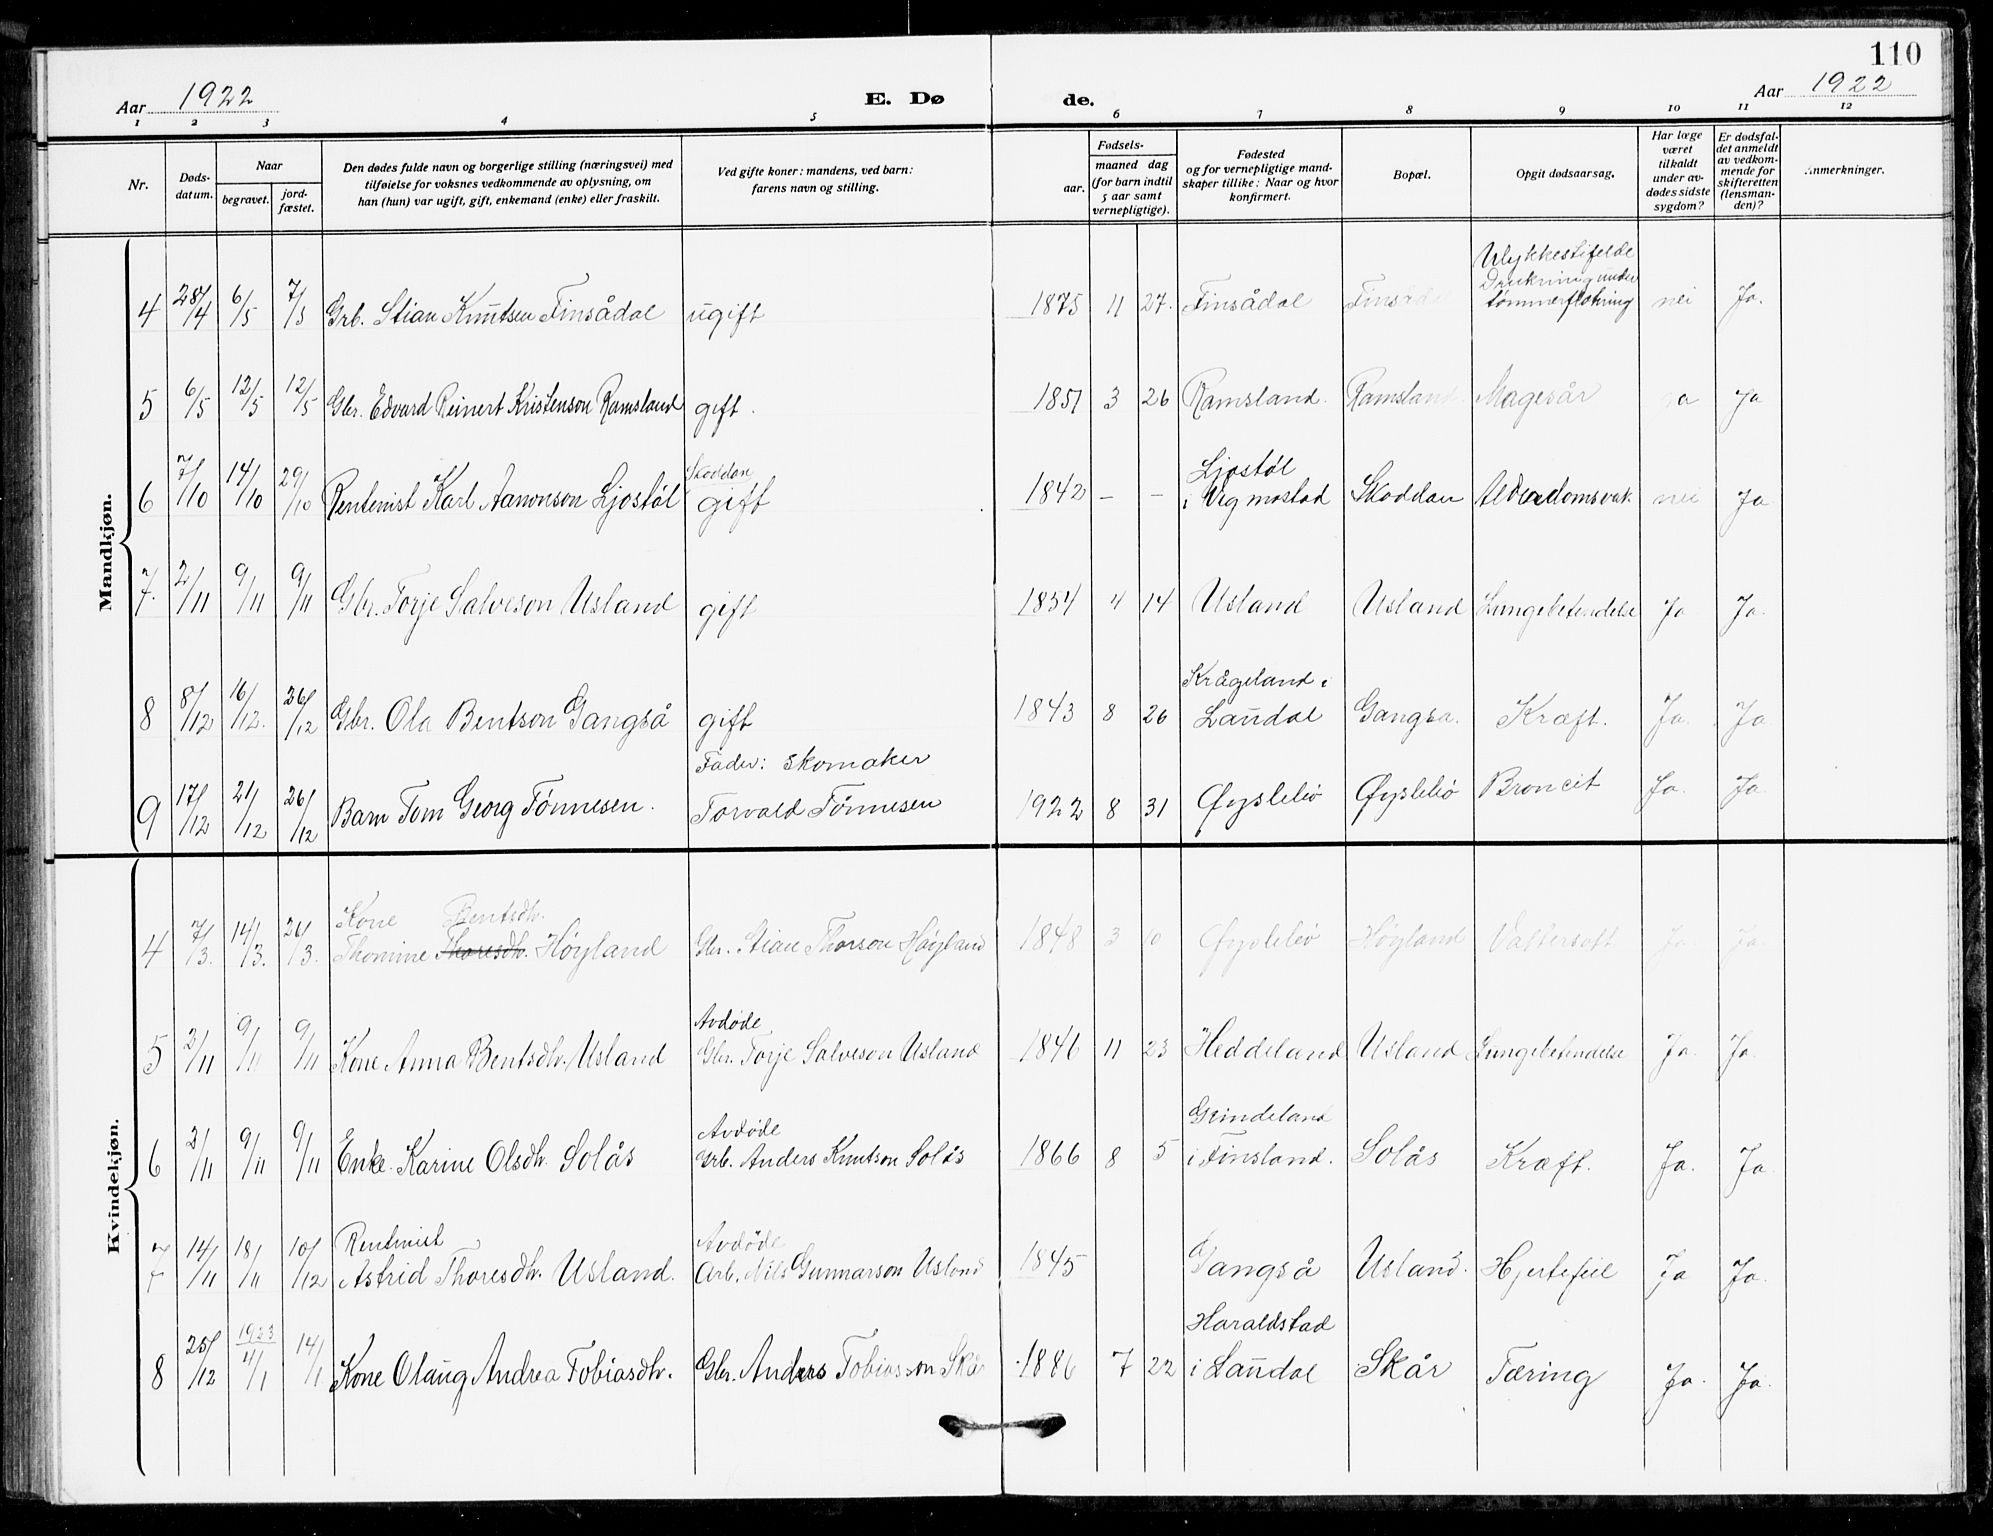 110
Aar 1922
E. Dø
de.
Aar 1922
1 2 3 4 5 6 7 8 9 10 11 12
Nr.
Døds-
datum.
Naar
begravet.
jord-
fæstet.
Den dødes fulde navn og borgerlige stilling (næringsvei) med
tilføielse for voksnes vedkommende av oplysning, om
han (hun) var ugift, gift, enkemand (enke) eller fraskilt.
Ved gifte koner: mandens, ved barn:
farens navn og stilling.
Fødsels-
aar.
maaned dag
(for barn indtil
5 aar samt
vernepligtige).
Fødested
og for vernepligtige mand-
skaper tillike: Naar og hvor
konfirmert.
Bopæl.
Opgit dødsaarsag.
Har læge
været
tilkaldt
under av-
dødes sidste
sygdom?
Er dødsfal-
det anmeldt
av vedkom-
mende for
skifteretten
(lensman-
den)?
Anmerkninger.
Mandkjøn.
4 28/4 6/5 7/5 Grb. Stian Knutsen Finsådal ugift 1875 11 27. Finsådal Finsådal Ulykkestifelde
Drukning under
tømmerfløtning nei Ja.
5 6/5 12/5 12/5 Gbr. Edvard Reinert Kristenson Ramsland gift. 1851 3 26 Ramsland. Ramsland. Magesår Ja Ja
6 7/10 14/10 29/10 Rentenist Karl Aanonson Ljostøl Skoddan
gift 1842 - - Ljostøl
i Vigmostad Skoddan Alderdomsvak nei Ja
7. 2/11 9/11 9/11 Gbr. Torje Salveson Usland gift 1854 4 14 Usland Usland Lungebetendelse Ja Ja.
8 8/12 16/12. 26/12 Gbr. Ola Bentson Gangså gift 1843 8 26 Krågeland i
Laudal Gangså. Kræft. Ja. Ja
9 17/12 21/12 26/12 Barn Tom Georg Tønnesen. Fader: skomaker
Torvald Tønnesen 1922 8 31 Øyslebø Øyslebø Broncit Ja. Ja.
Kvindekjøn.
4 7/3. 14/3. 26/3. Kone Bentsdtr.
Thomine Thoresdtr. Høyland Gbr. Stian Thorson Høyland 1848 3 10 Øyslebø Høyland Vattersott Ja Ja.
5 2/11 9/11 9/11 Kone Anna Bentsdtr. Usland Avdøde
Gbr. Torje Salveson Usland 1846 11 23 Heddeland Usland Lungebetendelse Ja. Ja.
6 2/11 9/11 9/11 Enke. Karine Olsdtr. Solås Avdøde
Grb. Anders Knutson Solås 1866 8 5 Grindeland
i Finsland. Solås Kræft. Ja. Ja.
7 14/11 18/11 10/12 Rentenist
Astrid Thoresdtr. Usland. Avdøde
Arb. Nils Gunnarson Usland 1845 Gangså Usland. Hjertefeil Ja Ja.
8 25/12 1923
4/1 14/1 Kone Olaug Andrea Tobiasdtr. Gbr. Anders Tobiasson Skår 1886 7 22 Haraldstad
i Laudal Skår Tæring Ja. Ja.